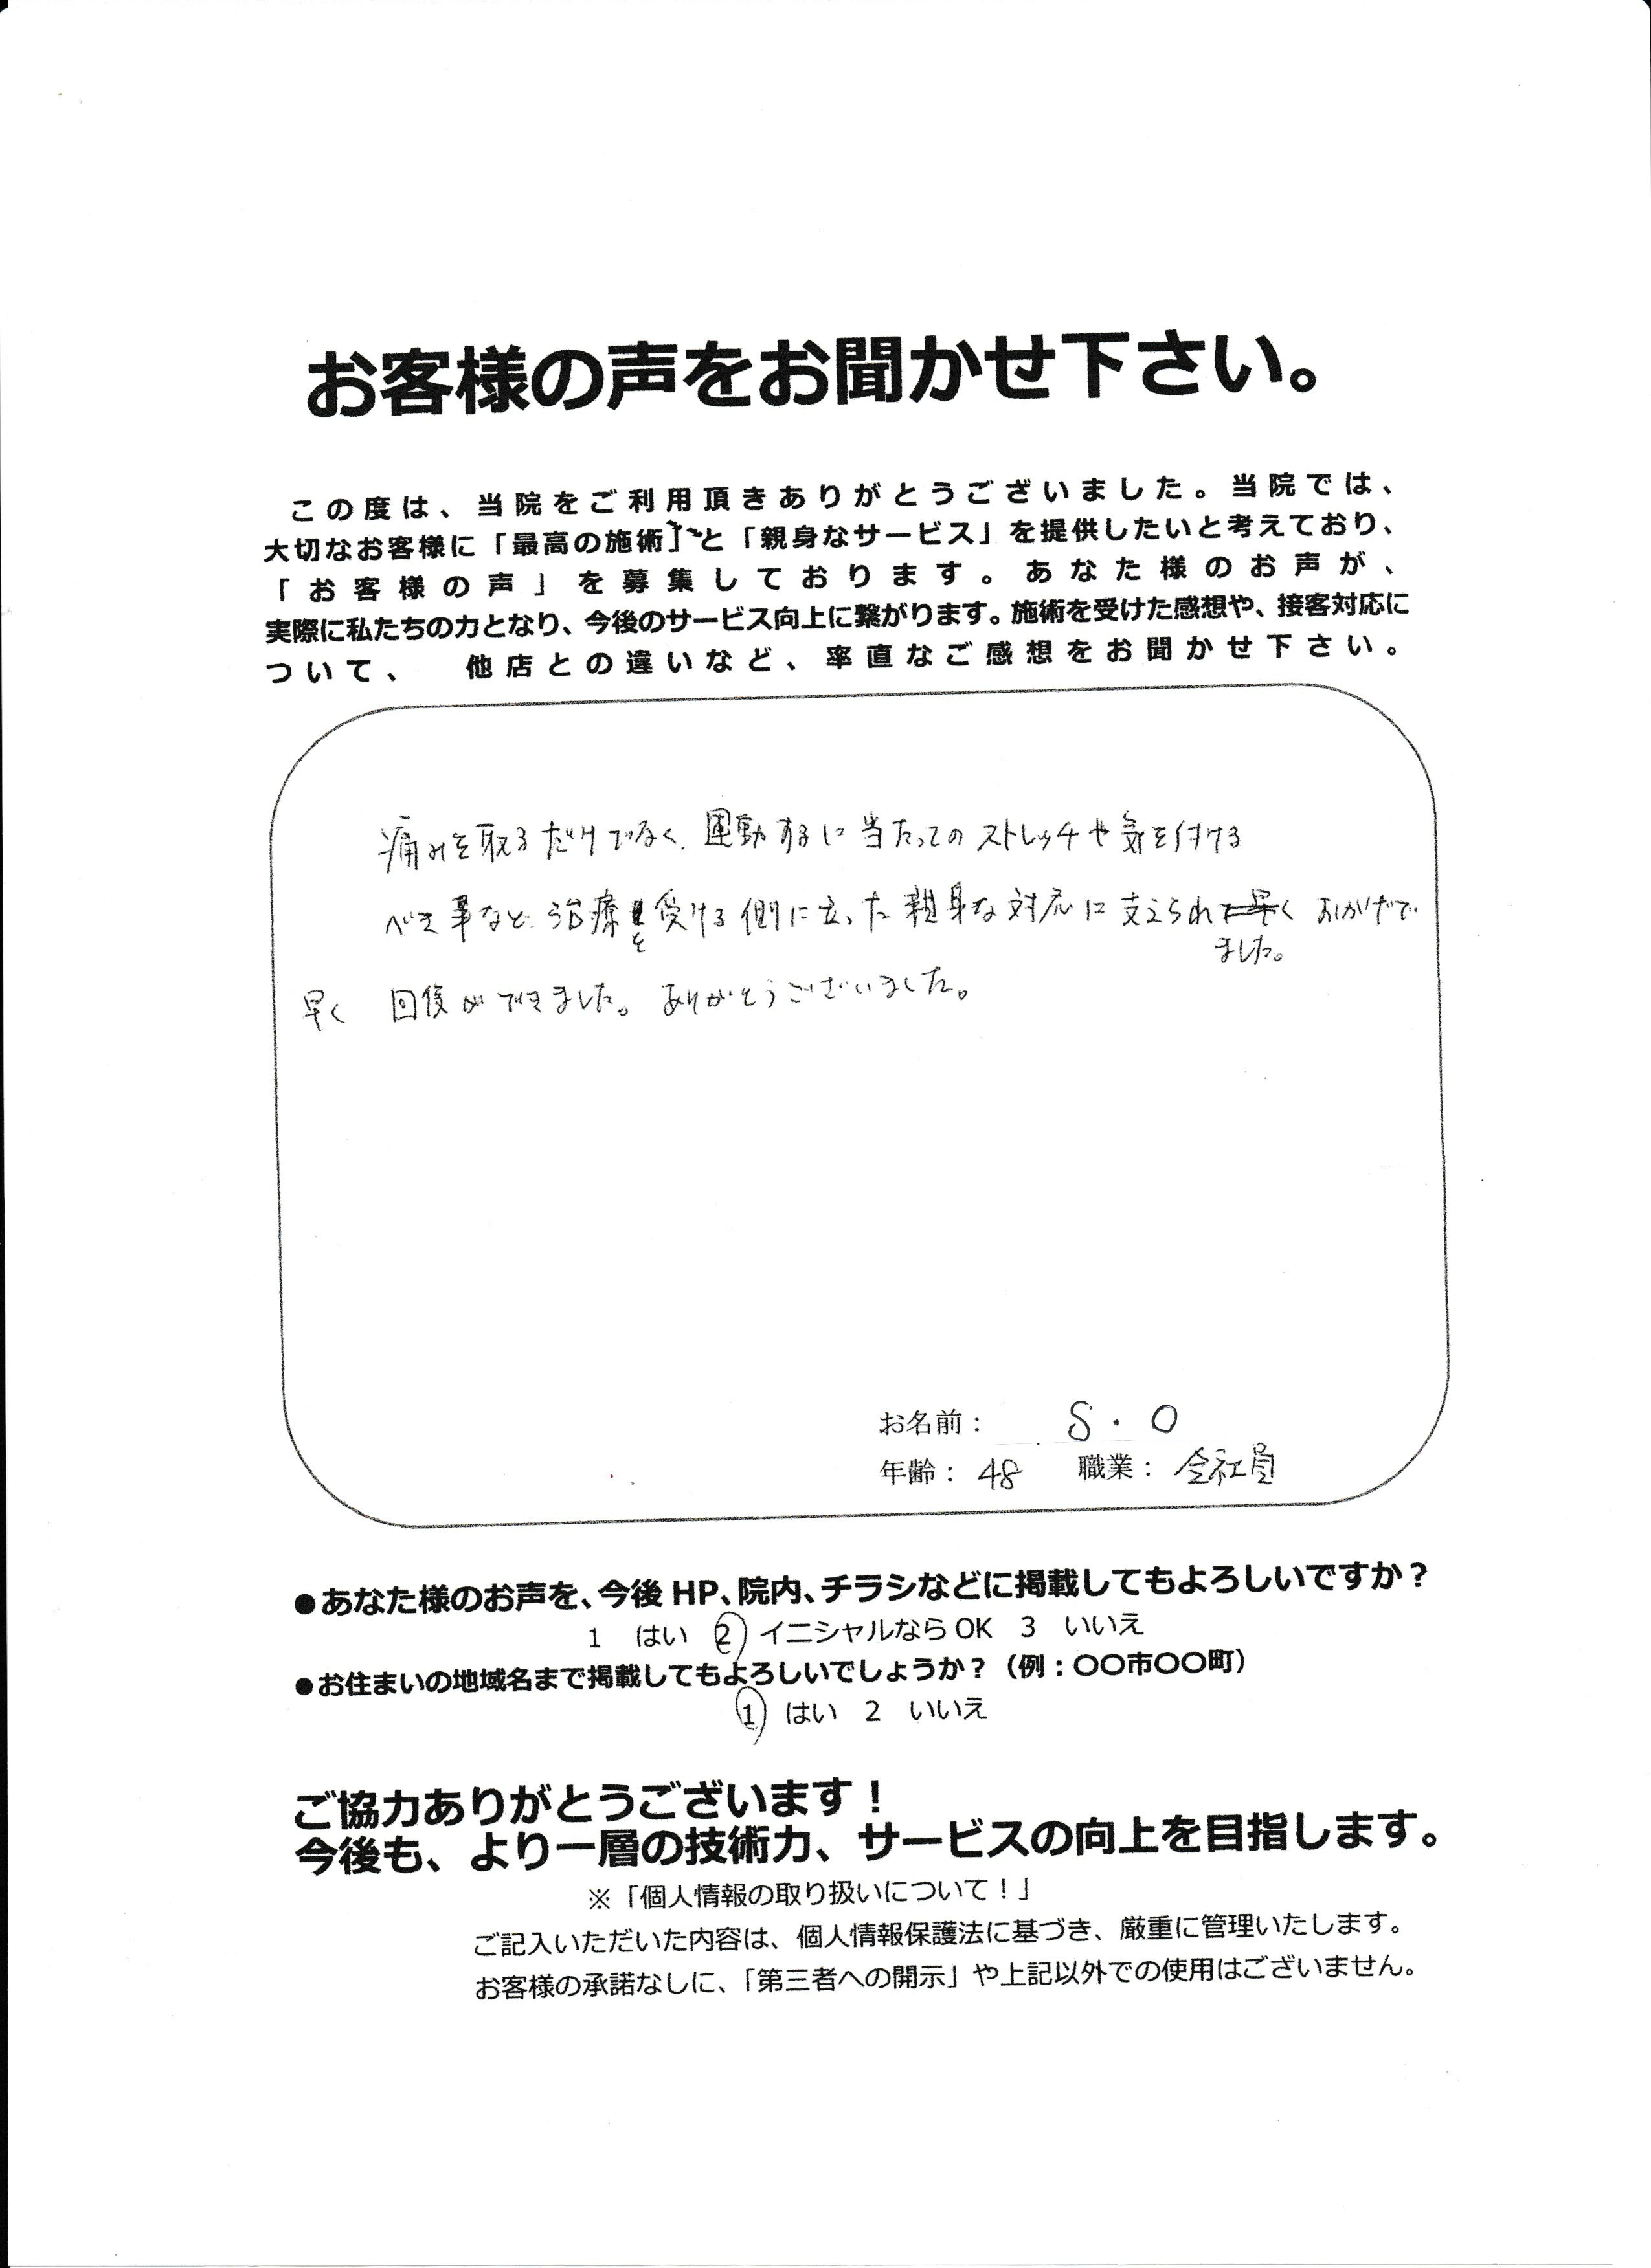 お客様の声をお聞かせ下さい。
この度は、当院をご利用頂きありがとうございました。当院では、
大切なお客様に「最高の施術」と「親身なサービス」を提供したいと考えており、
「お客様の声」を募集しております。あなた様のお声が、
実際に私たちの力となり、今後のサービス向上に繋がります。施術を受けた感想や、接客対応に
ついて、　他店との違いなど、率直なご感想をお聞かせ下さい。
痛みを取るだけでなく、運動するに当たってのストレッチや気を付ける
べき事など、治療を受ける側に立った親身な対応に支えられました。おかげで
早く 回復ができました。ありがとうございました。
お名前： S・O
年齢： 48 職業： 会社員
●あなた様のお声を、今後 HP、院内、チラシなどに掲載してもよろしいですか？
1 はい ② イニシャルなら OK 3 いいえ
●お住まいの地域名まで掲載してもよろしいでしょうか？（例：〇〇市〇〇町）
① はい 2 いいえ
ご協力ありがとうございます！
今後も、より一層の技術力、サービスの向上を目指します。
※「個人情報の取り扱いについて！」
ご記入いただいた内容は、個人情報保護法に基づき、厳重に管理いたします。
お客様の承諾なしに、「第三者への開示」や上記以外での使用はございません。